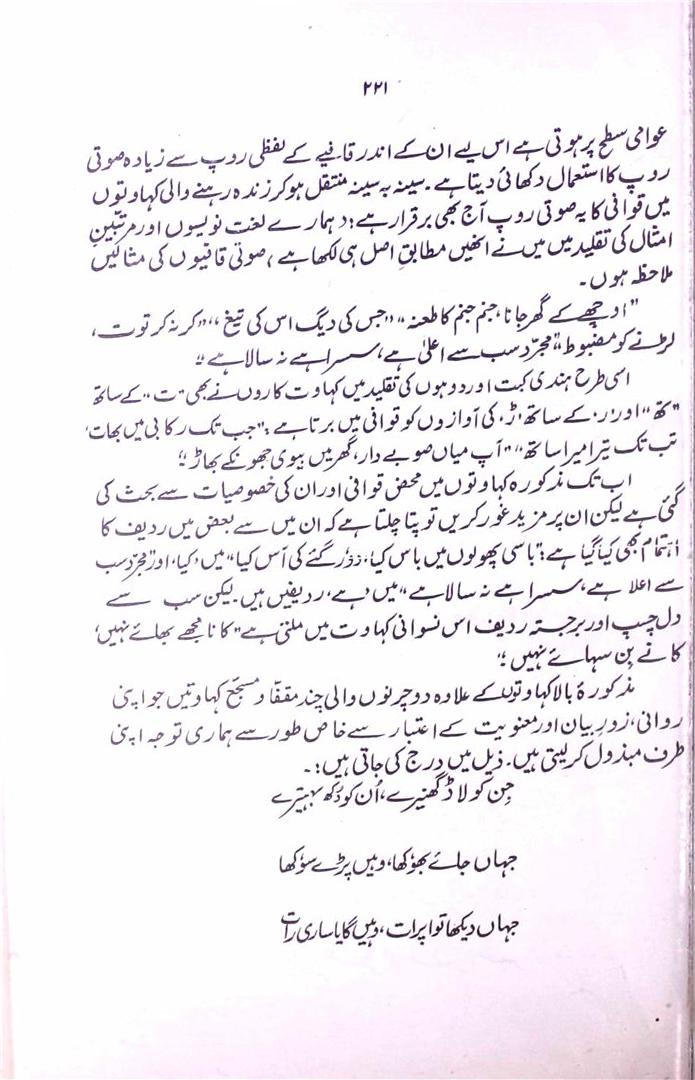 ۲۲۱
عوامی سطح پر ہوتی ہے اس لیے ان کے اندر قافیے کے لفظی روپ سے زیادہ صوتی
روپ کا استعمال دکھائی دیتا ہے۔ سینہ بہ سینہ منتقل ہو کر زندہ رہنے والی کہاوتوں
میں قوافی کا یہ صوتی روپ آج بھی برقرار ہے؛ (ہمارے لغت نویسوں اور مرتبینِ
امثال کی تقلید میں میں نے انھیں مطابقِ اصل ہی لکھا ہے) صوتی قافیوں کی مثالیں
ملاحظہ ہوں۔
"اوچھے کے گھر جانا، جنم جنم کا طعنہ"، "جس کی دیگ اس کی تیغ"، "کرنہ کرتوت،
لڑنے کو مضبوط"، "مجرّد سب سے اعلیٰ ہے، سسرا ہے نہ سالا ہے"۔
اسی طرح ہندی کبت اور دوہوں کی تقلید میں کہاوت کاروں نے بھی "ت" کے ساتھ
"تھ" اور 'ر' کے ساتھ 'ڑ' کی آوازوں کو قوافی میں برتا ہے: "جب تک رکابی میں بھات،
تب تک تیرا میرا ساتھ" "آپ میاں صوبے دار، گھر میں بیوی جھونکے بھاڑ"۔
اب تک مذکورہ کہاوتوں میں محض قوافی اور ان کی خصوصیات سے بحث کی
گئی ہے لیکن ان پر مزید غور کریں تو پتا چلتا ہے کہ ان میں سے بعض میں ردیف کا
اہتمام بھی کیا گیا ہے: "باسی پھولوں میں باس کیا، دُور گئے کی آس کیا" میں 'کیا'، اور "مجرّد سب
سے اعلا ہے، سسرا ہے نہ سالا ہے" میں 'ہے'، ردیفیں ہیں۔ لیکن سب سے
دل چسپ اور برجستہ ردیف اس نسوانی کہاوت میں ملتی ہے "کانا مجھے بھائے نہیں،
کانے بِن سہائے نہیں"۔
مذکورۂ بالا کہاوتوں کے علاوہ دو جزئوں والی چند مقفّا و مسجّع کہاوتیں جو اپنی
روانی، زورِ بیان اور معنویت کے اعتبار سے خاص طور سے ہماری توجہ اپنی
طرف مبذول کر لیتی ہیں۔ ذیل میں درج کی جاتی ہیں:۔
جِن کو لاڈ گھنیرے، اُن کو دُکھ بہتیرے
جہاں جائے بھوٗکھا، وہیں پڑے سوٗکھا
جہاں دیکھا توا پرات، وہیں گایا ساری رات